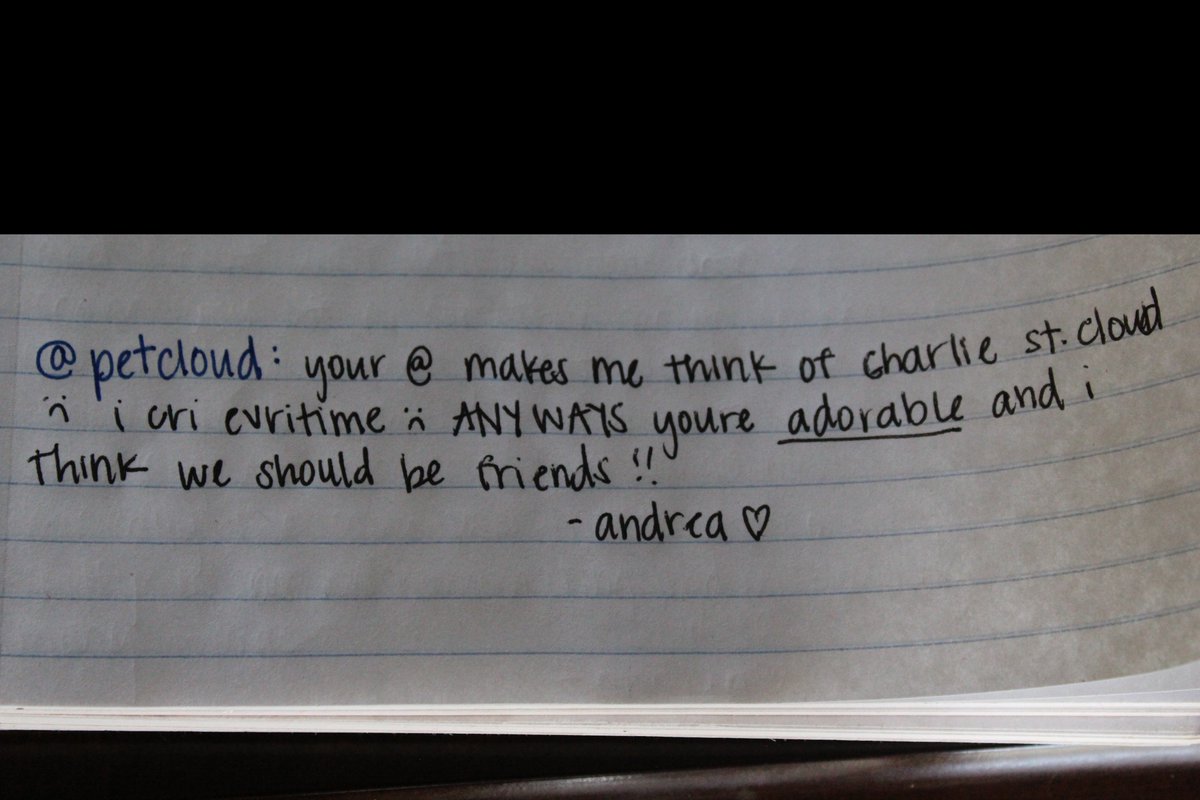 @petcloud: your @ makes me think of charlie st. cloud
:( i cri evritime :( ANYWAYS youre adorable and i
think we should be friends !!
- andrea ♡